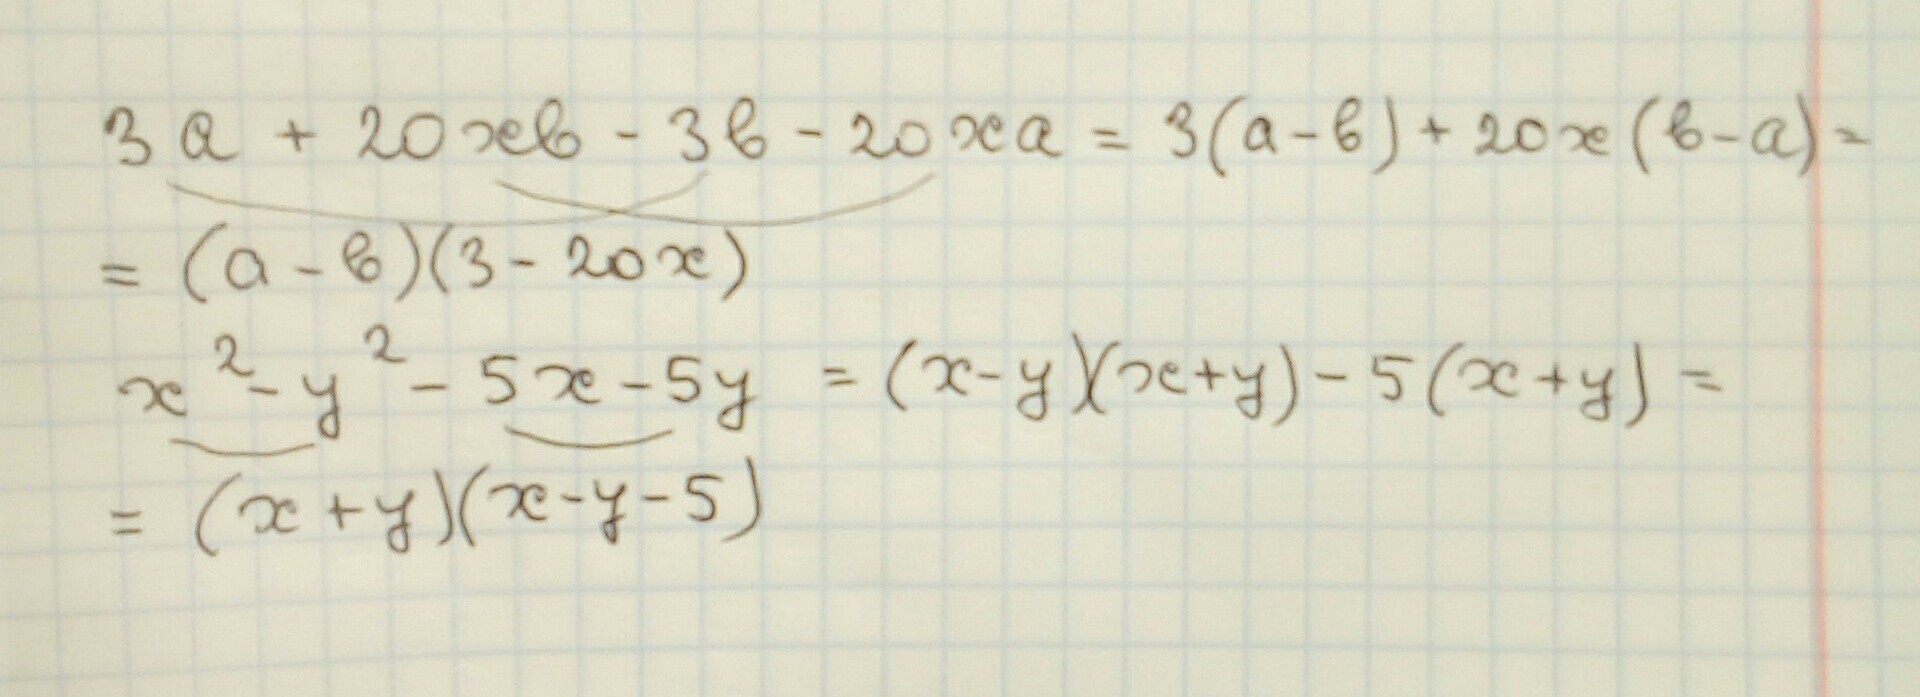 3a + 20xb - 3b - 20xa = 3(a-b) + 20x(b-a) =
= (a-b)(3-20x)
x² - y² - 5x - 5y = (x-y)(x+y) - 5(x+y) =
= (x+y)(x-y-5)